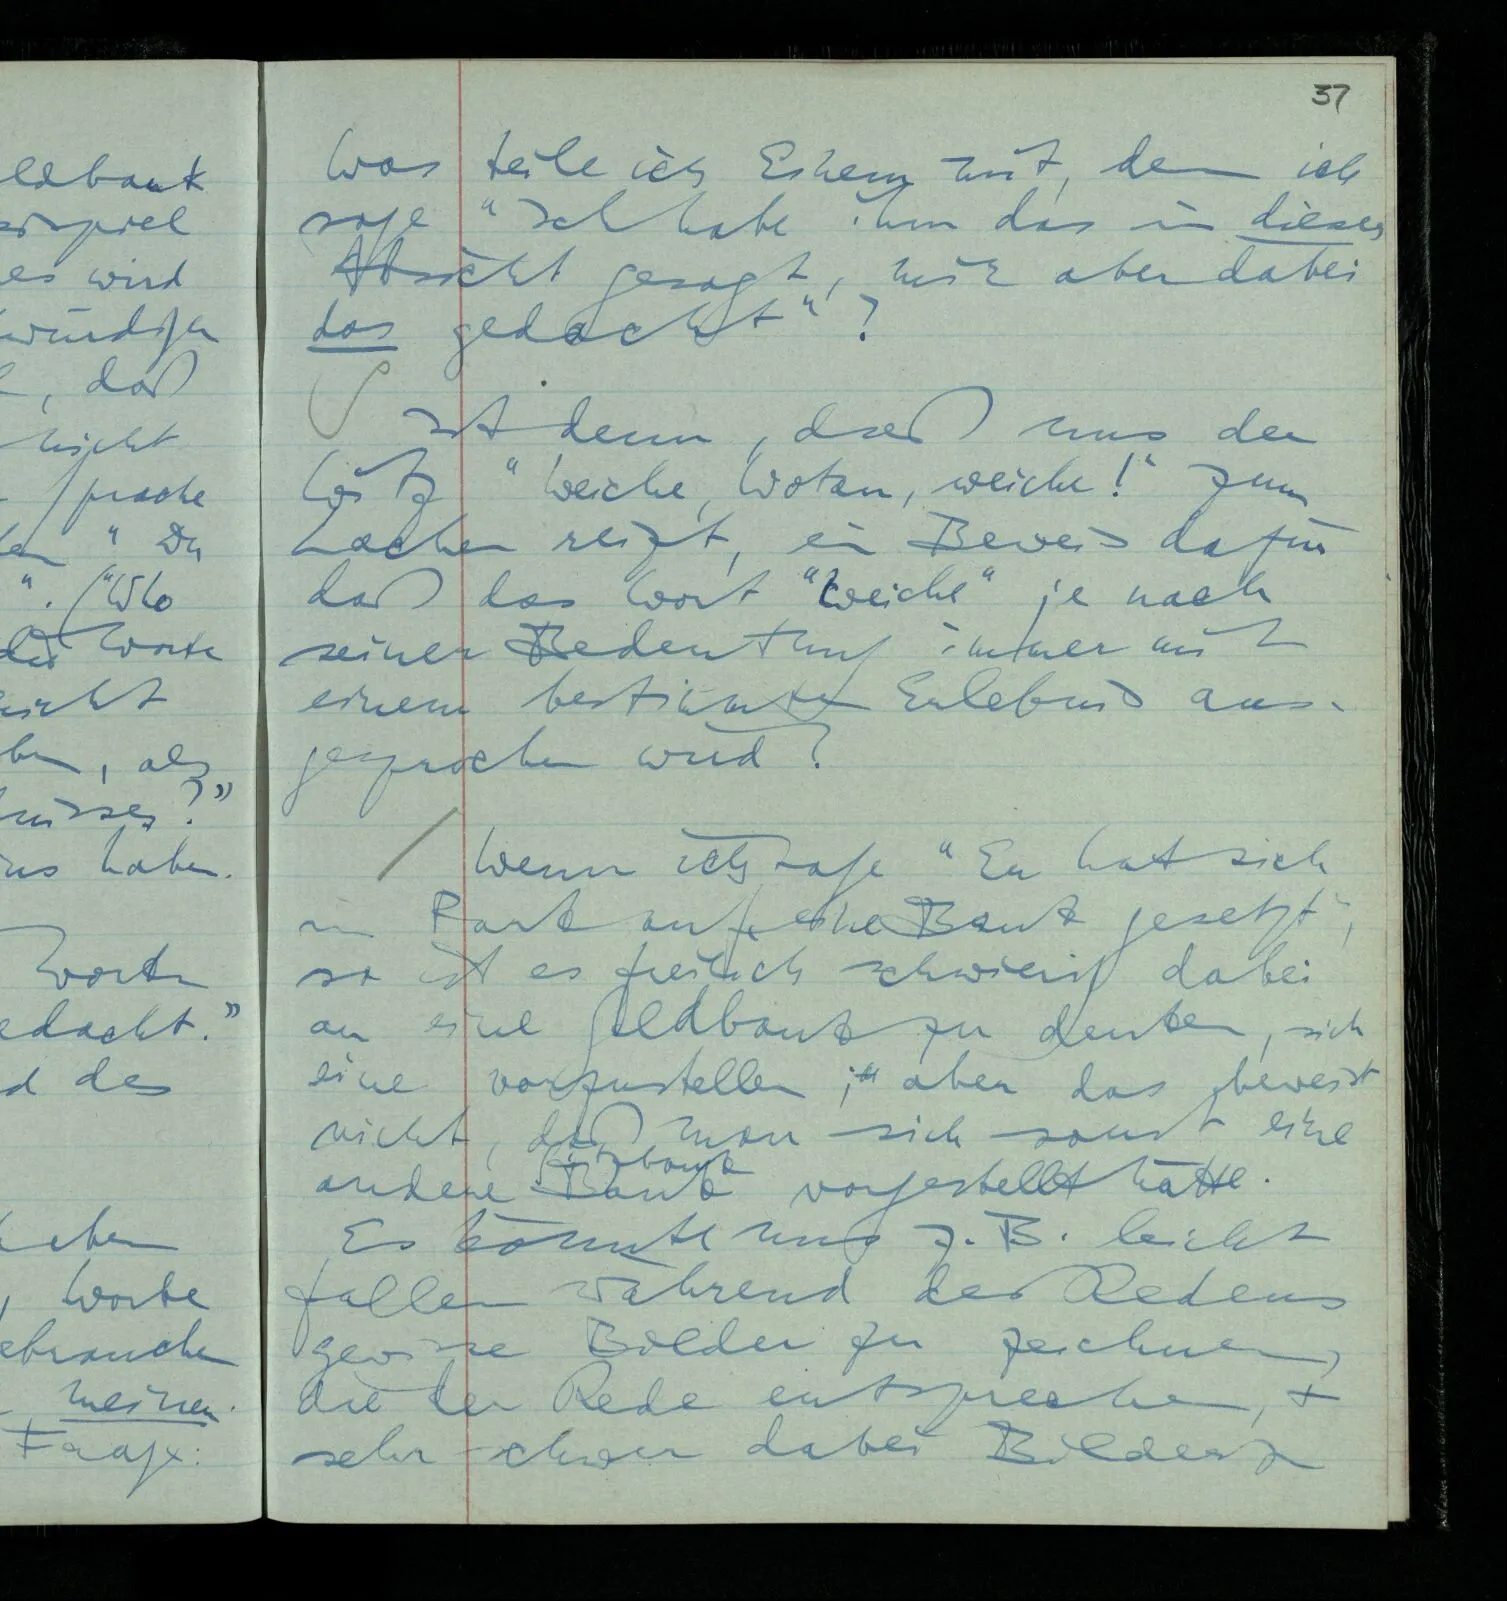 eldbank
spiel
es wird
würdigen
, daß
nicht
Sprache
"Du
". ("Wo
die Worte
nicht
ben, als
nisses?"
uns haben.
Worten
edacht."
d des
, Worte
ebrauchen
meinen.
Frage:
37
Was teile ich Einem mit, dem ich
sage "Ich habe ihm das in dieser
Absicht gesagt, mir aber dabei
das gedacht"?
Ist denn, daß uns der
Witz "Weiche, Wotan, weiche!" zum
Lachen reizt, ein Beweis dafür
daß das Wort "weiche" je nach
seiner Bedeutung immer mit
einem bestimmten Erlebnis aus-
gesprochen wird?
/ Wenn ich sage "Er hat sich
im Park auf eine Bank gesetzt",
so ist es freilich schwierig dabei
an eine Geldbank zu denken, sich
eine vorzustellen; aber das beweist
nicht, daß man sich sonst eine
andere Bank vorgestellt hätte.
Es könnte uns z.B. leicht
fallen während des Redens
gewisse Bilder zu zeichnen,
die der Rede entsprechen, +
sehr schwer dabei Bilder z